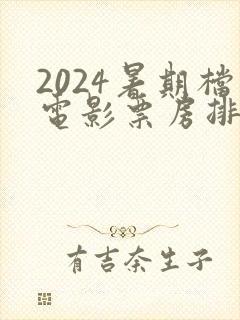 2024暑期檔
電影票房排
有吉奈生子